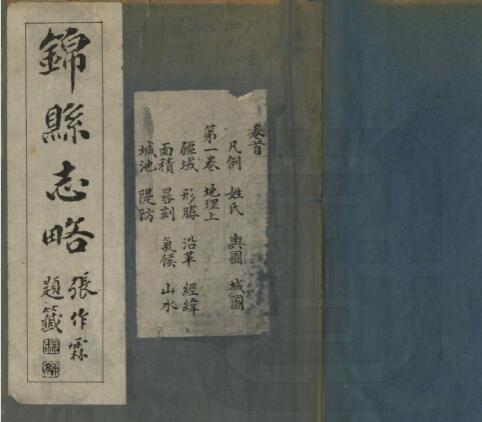 錦縣志略
張作霖
題籤
卷首
凡例 姓氏 輿圖 城圖
第一卷 地理上
疆域 形勝 沿革 經緯
面積 晷刻 氣候 山水
城池 隄防